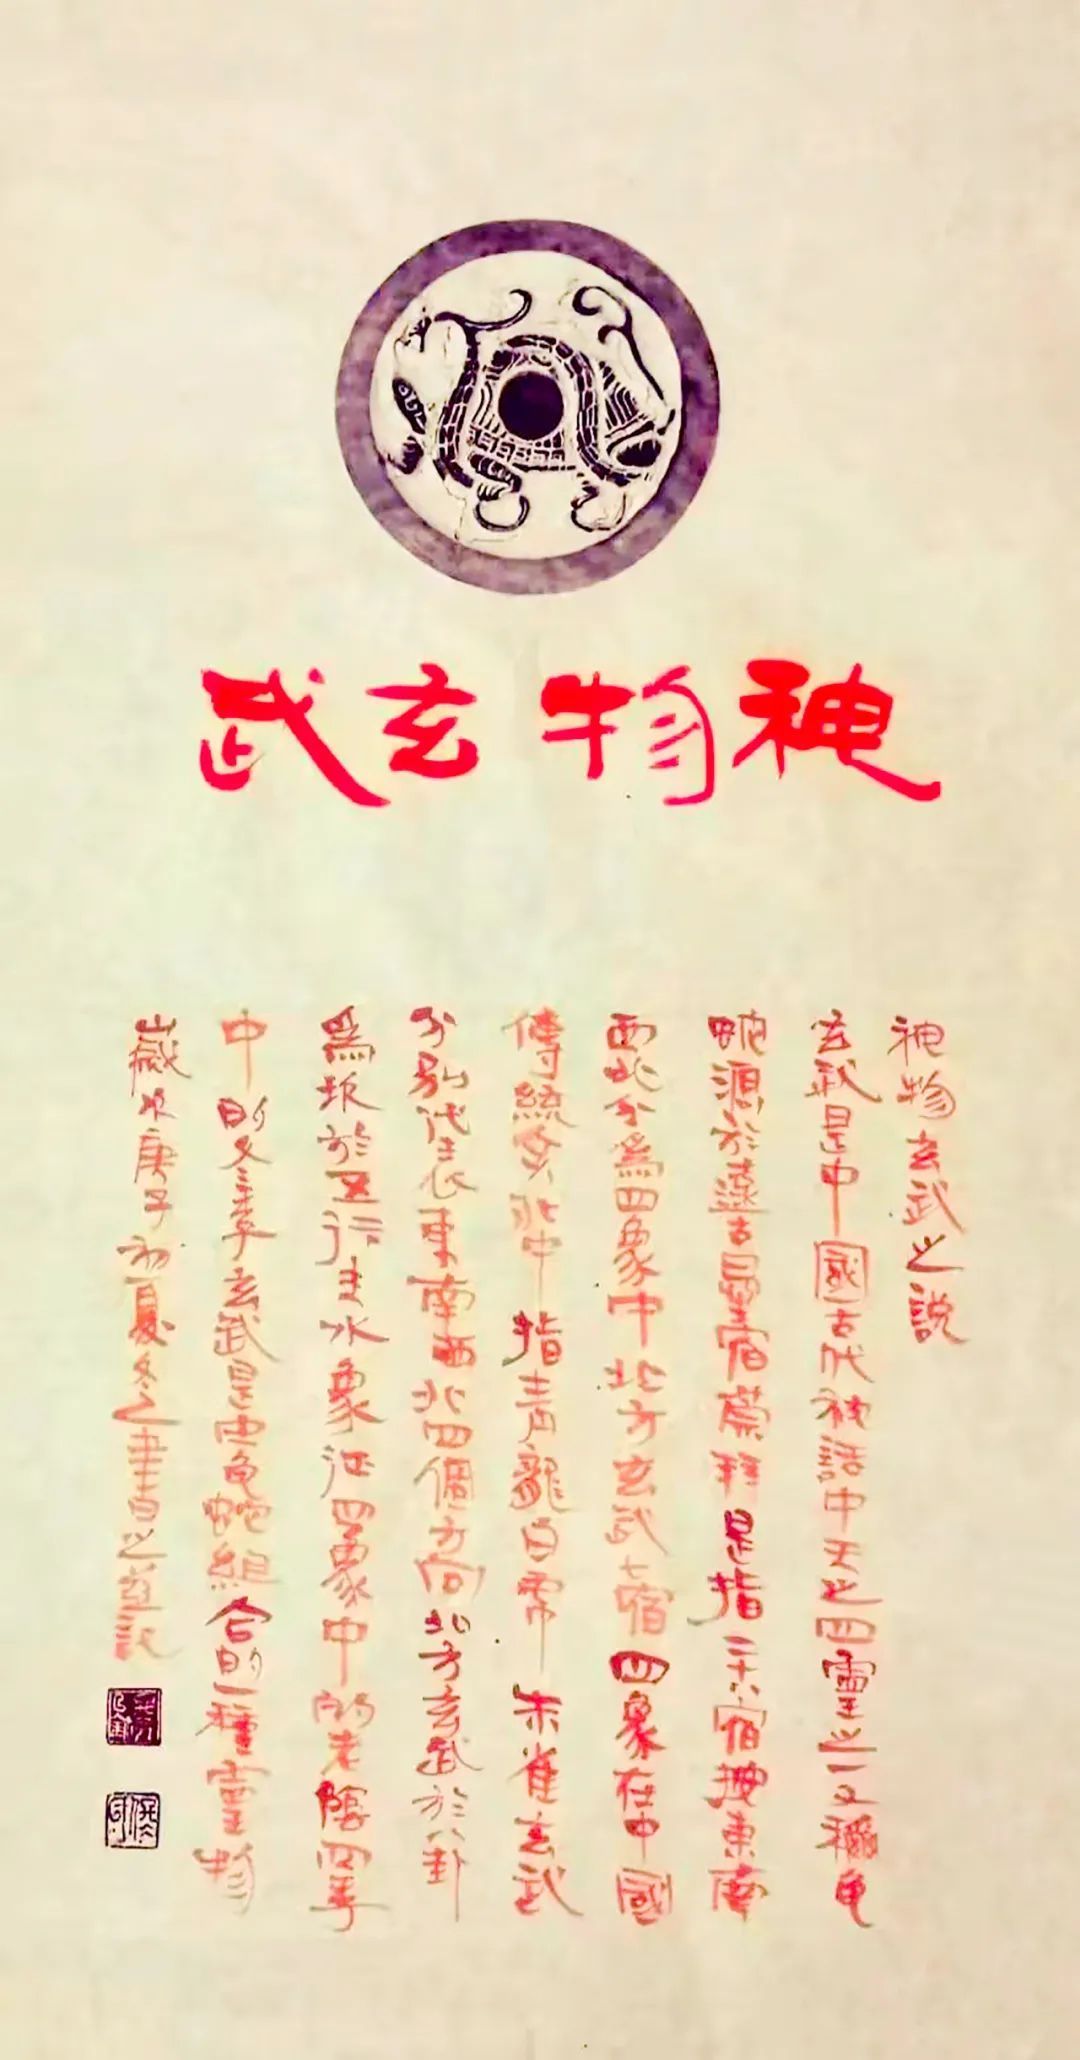 神物玄武
神物玄武之説
玄武是中國古代神話中天之四靈之一又稱龜
蛇源於遠古星宿崇拜是指二十八宿按東南
西北分爲四象中北方玄武七宿四象在中國
傳統文化中指青龍白虎朱雀玄武
分别代表東南西北四個方向北方玄武於八卦
爲坎於五行主水象征四象中的老陰四季
中的冬季玄武是由龜蛇組合的一種靈物
歲次庚子初夏冬之書之並記